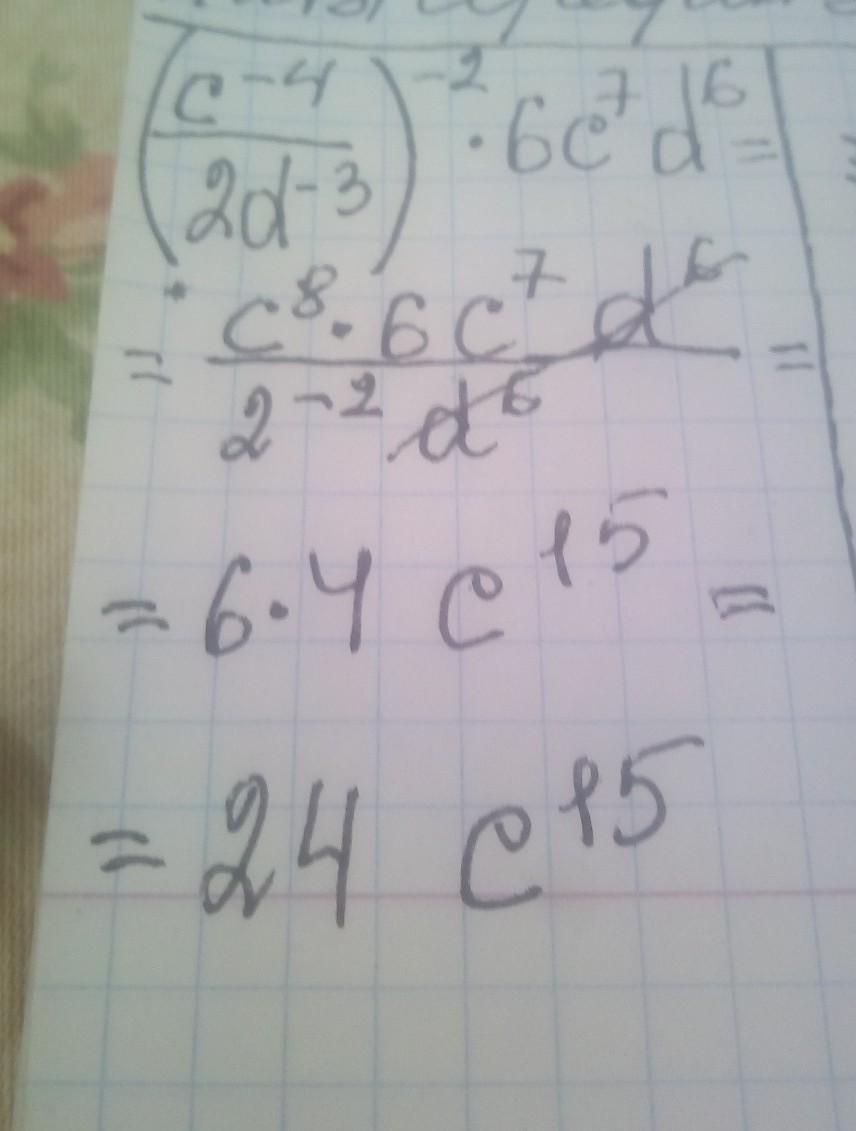 (c⁻⁴/2d⁻³)⁻² · 6c⁷d⁶ =
= c⁸ · 6c⁷d⁶/2⁻²d⁶ =
= 6 · 4 c¹⁵ =
= 24 c¹⁵